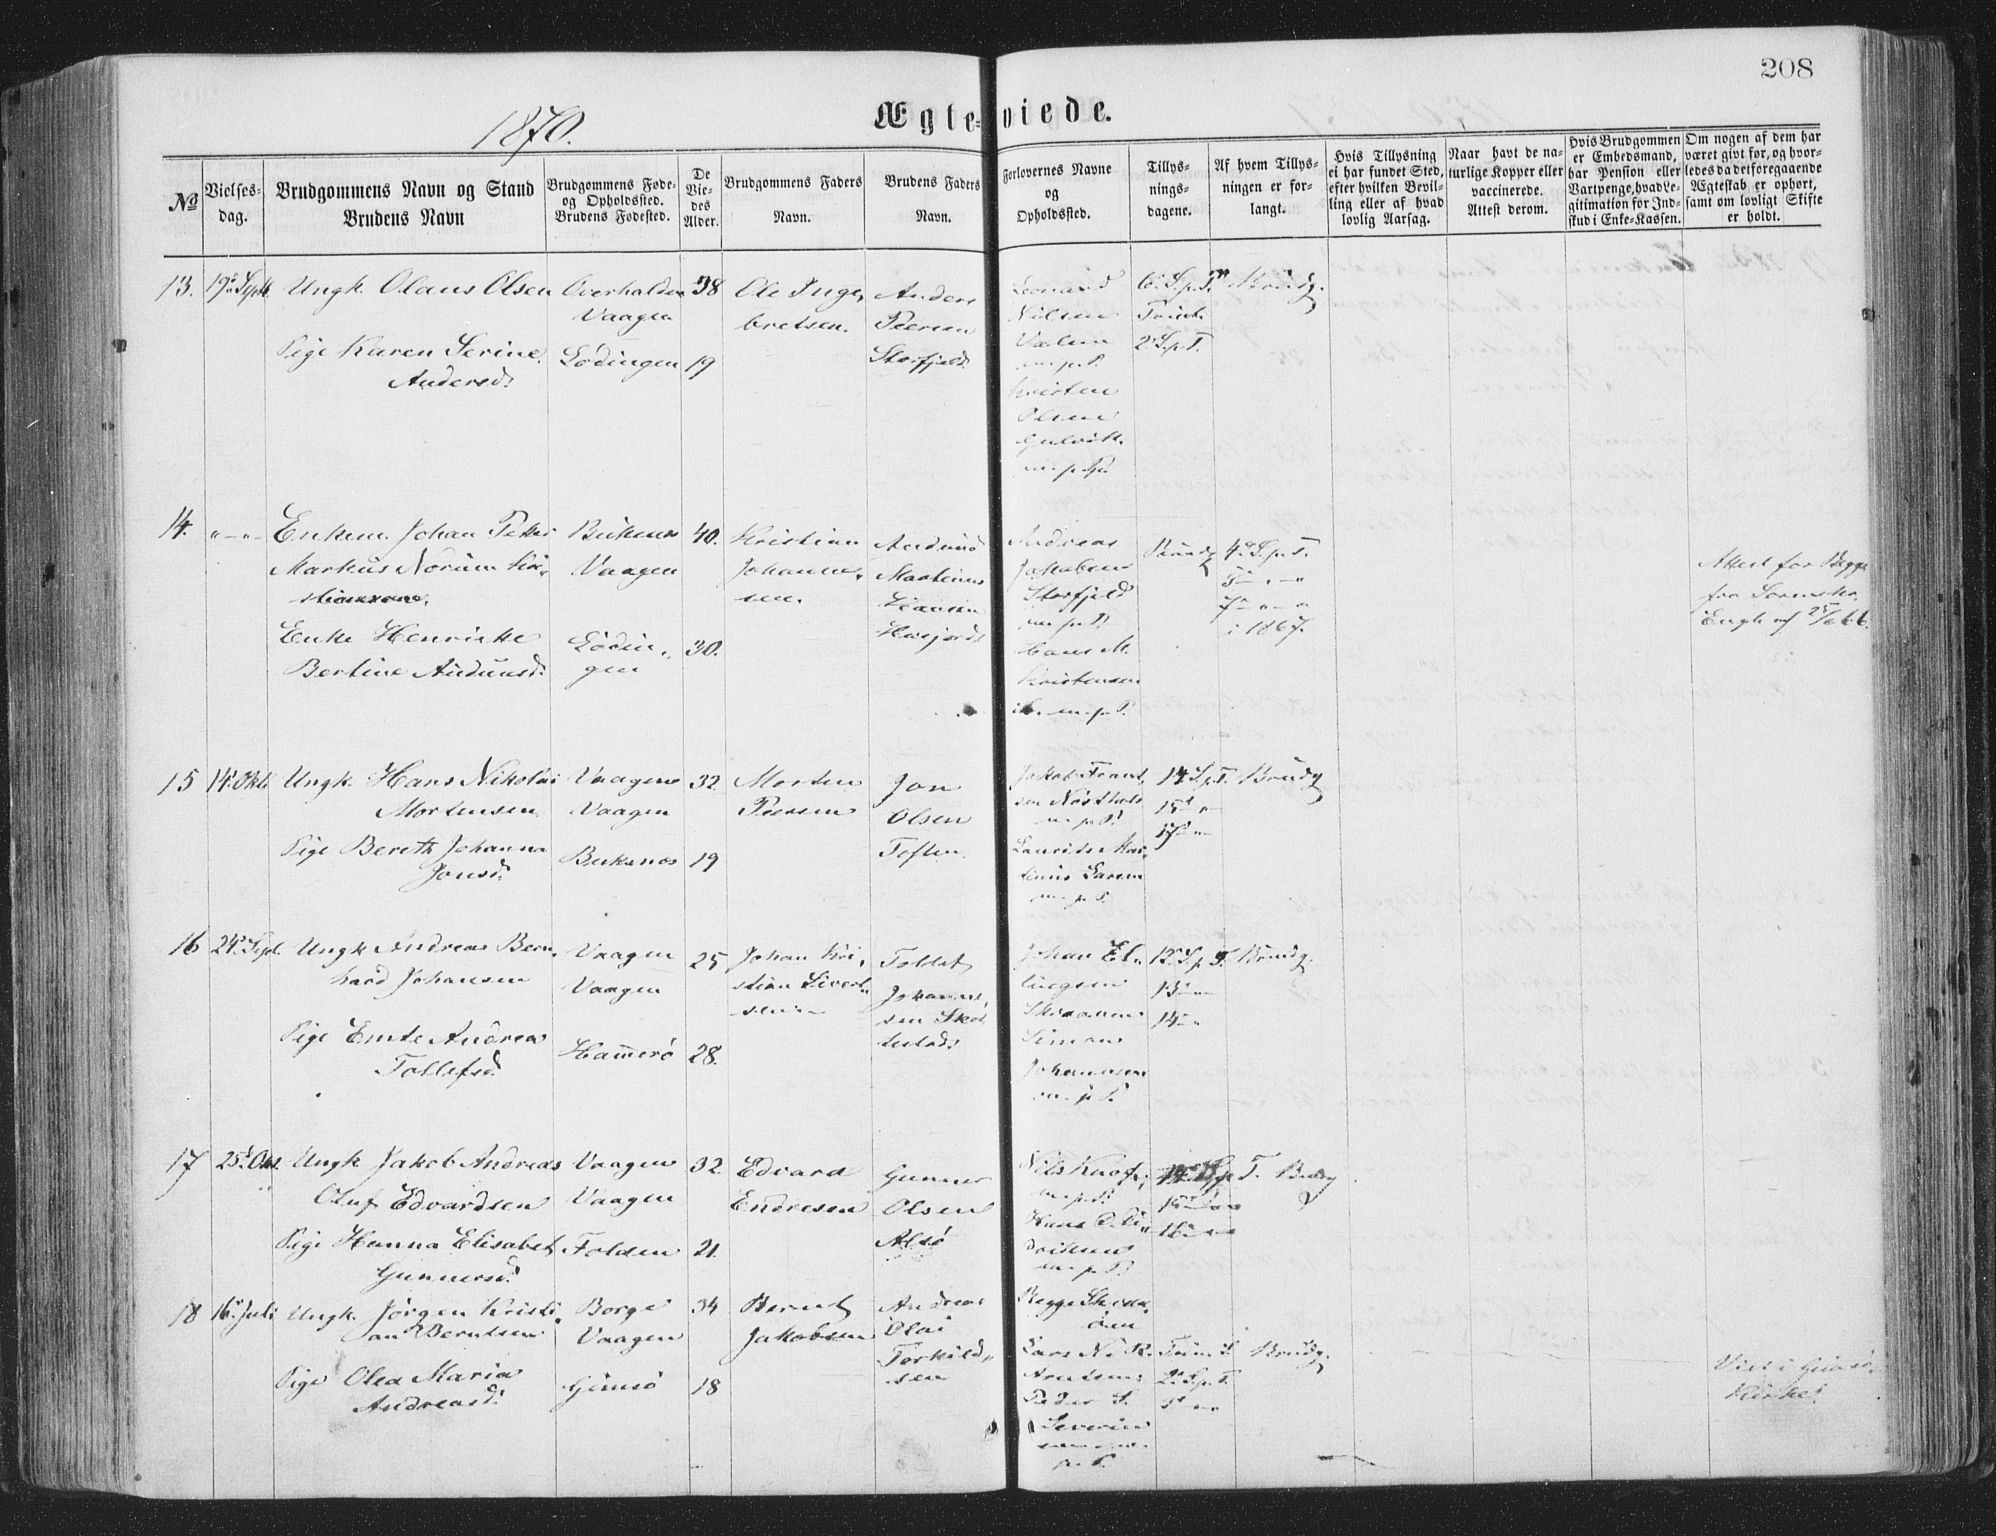 208
1870.
Ægte-viede.
№
Vielses-
dag.
Brudgommens Navn og Stand
Brudens Navn
Brudgommens Føde-
og Opholdssted.
Brudens Fødested.
De
Vie-
des
Alder.
Brudgommens Faders
Navn.
Brudens Faders
Navn.
Forlovernes Navne
og
Opholdssted.
Tillys-
nings-
dagene.
Af hvem Tillys-
ningen er for-
langt.
Hvis Tillysning
ei har fundet Sted,
efter hvilken Bevil-
ling eller af hvad
lovlig Aarsag.
Naar havt de na-
turlige Kopper eller
vaccinerede.
Attest derom.
Hvis Brudgommen
er Embedsmand,
har Pension eller
Vartpenge, hvad Le-
gitimation for Ind-
skud i Enke-Kassen.
Om nogen af dem har
været givt før, og hvor-
ledes da det foregaaende
Ægteskab er ophørt,
samt om lovligt Skifte
er holdt.
13. 19. Septb.
Ungk. Olaus Olsen
Pige Karen Serine
Andersd.
Overhalden
Vaagen
Lødingen
38
19
Ole Inge-
bretsen.
Anders
Peersen
Storfjeld
Leonard
Nilsen
m.p.P.
Kristen
Olsen
6. S.p.T.
Trinit.
2. S.p.T.
Brudg.
14. "—"—
Enkem. Johan Petter
Markus Norum Kri-
stiansen.
Enke Henrikke
Bertine Audunsd.
Buksnes
Vaagen
Lødin-
gen
40.
30.
Kristian
Johanne-
sen.
Audun
Martinus
Hansen
Andreas
Jakobsen
Storfjeld
m.p.P.
Hans M.
Kristensen
m.p.P.
Brudg
4. S.p.T.
5. "—"
7. "—"
i 1867.
Attest for Begge
fra
15 14. Oktb
Ungk. Hans Nikolai
Mortensen
Pige Bereth Johanna
Jonsd.
Vaagen
Vaagen
Buksnes
32
19
Morten
Peersen
Jon
Olsen
Toften.
m.p.P.
m.p.P.
14. S.p.T.
15. "
17. "
Brudg
16 24. Sept.
Ungk Andreas Bern-
hard Johansen
Pige Emte Andrea
Tollefsd.
Vaagen
Vaagen
Hamerø
25
28.
Johan Kri-
stian Sivert-
sen
Tollef
Johannes-
sen
Johan El-
lingsen
Simon
Johannsen
m.p.P.
12. S.p.T.
13. "
14. "
Brudg.
17 25. Okt.
Ungk Jakob Andreas
Oluf Edvardsen
Pige Hanna Elisabet
Gunnersd.
Vaagen
Vaagen
Folden
32
21.
Edvard
Endresen
Gunner
Olsen
Alsø
m.p.P.
m.p.P.
14. S.p.T.
15.
16.
Brudg
18 16. Juli
Ungk. Jørgen Kristi-
an Berntsen
Pige Olea Maria
Andreasd.
Borge
Vaagen
Gimsø
34
18
Bernt
Jakobsen
Andreas
Olai
Torkild-
sen
Begge
Lars N. R.
Arntsen
Peder S.
m.p.P.
2. S.p.T.
Brudg.
Viet i Gimsø
Kirke.